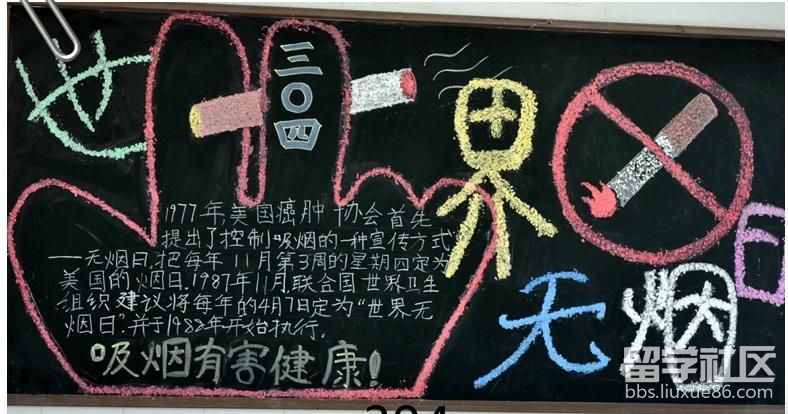 世界无烟日
三〇四
1977年美国癌肿协会首先
提出了控制吸烟的一种宣传方式
——无烟日.把每年11月第3周的星期四定为
美国的烟日.1987年11月,联合国世界卫生
组织建议将每年的4月7日定为“世界无
烟日”.并于1988年开始执行.
吸烟有害健康!
留学社区
bbs.liuxue86.com